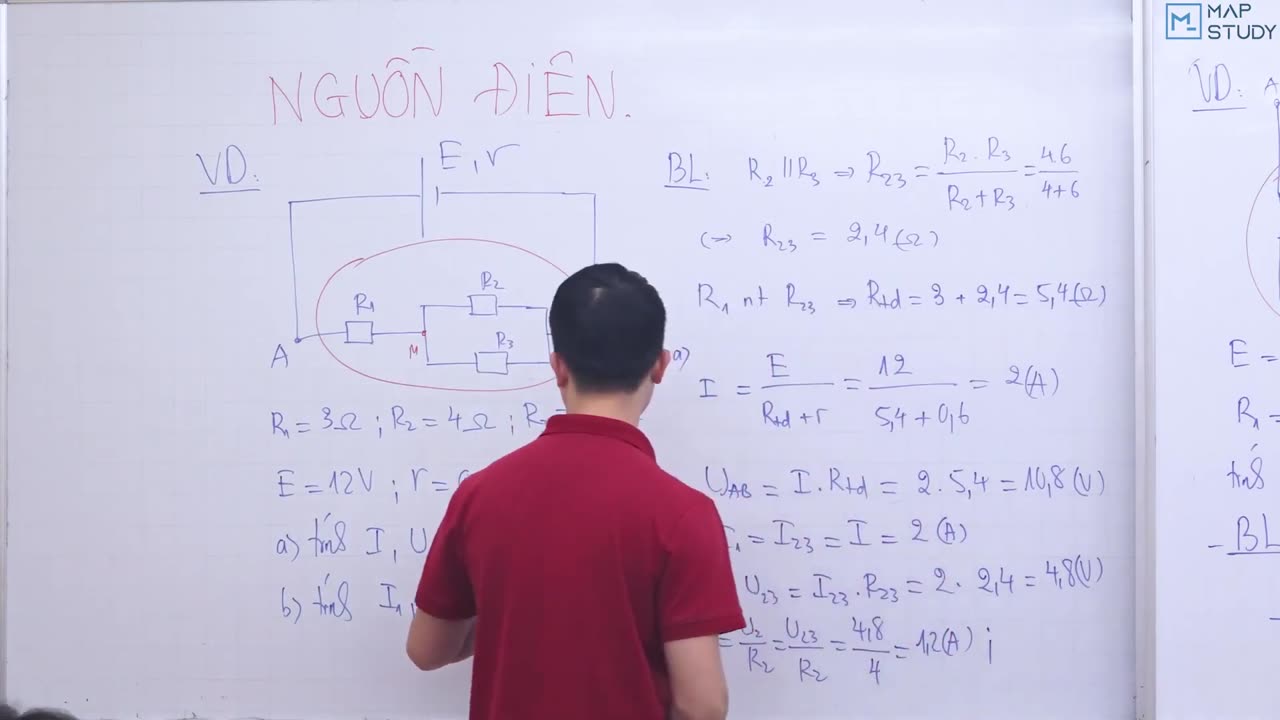 MAP
STUDY
NGUỒN ĐIỆN.
VD:
E, r
R1
R2
R3
A
M
R1 = 3Ω ; R2 = 4Ω ;
E = 12V ; r =
a) tính I, U
b) tính I1,
BL: R2 // R3 ⇒ R23 = R2 . R3 / R2 + R3 = 4.6 / 4+6
(⇒ R23 = 2,4 (Ω)
R1 nt R23 ⇒ Rtd = 3 + 2,4 = 5,4 (Ω)
a) I = E / Rtd + r = 12 / 5,4 + 0,6 = 2 (A)
UAB = I . Rtd = 2 . 5,4 = 10,8 (V)
= I23 = I = 2 (A)
U23 = I23 . R23 = 2 . 2,4 = 4,8 (V)
= U2 / R2 = U23 / R2 = 4,8 / 4 = 1,2 (A) ;
VD: A
E =
R1 =
tính
- BL